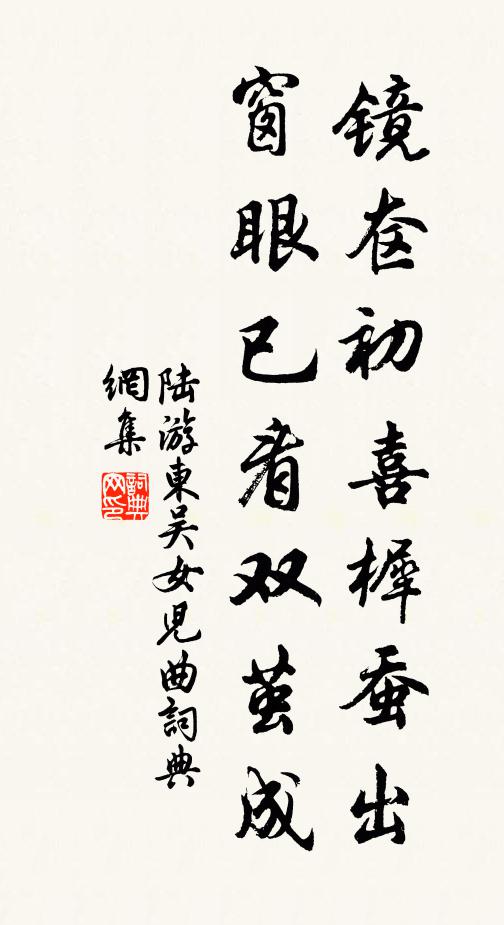 镜奁初喜樨蚕出
窗眼已看双茧成
陆游東吴女児曲詞典
網集
詞典
网印